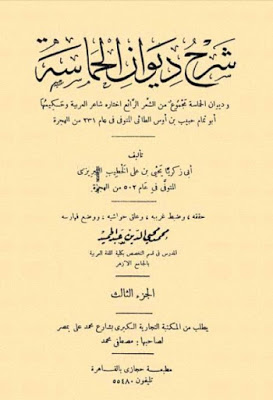 شرح ديوان الحماسة
وديوان الحماسة مجموع من الشعر الرائع اختاره شاعر العربية وحكيمها
أبو تمام حبيب بن أوس الطائى المتوفى فى عام ٢٣١ من الهجرة
تأليف
أبى زكريا يحيى بن على الخطيب التبريزى
المتوفى فى عام ٥٠٢ من الهجرة
حققه، وضبط غريبه، وعلق حواشيه، ووضع فهارسه
محمد محيى الدين عبد الحميد
المدرس فى قسم التخصص بكلية اللغة العربية
بالجامع الأزهر
الجزء الثالث
يطلب من المكتبة التجارية الكبرى بشارع محمد على بمصر
لصاحبها: مصطفى محمد
مطبعة حجازى بالقاهرة
تليفون ٥٥٤٨٠